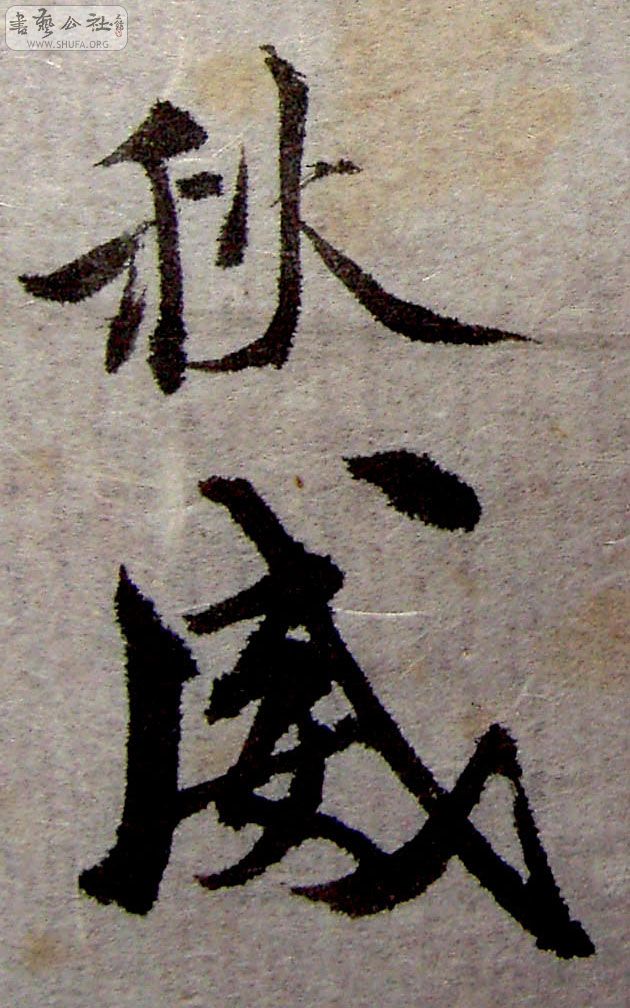 書藝公社
WWW.SHUFA.ORG
秋
威